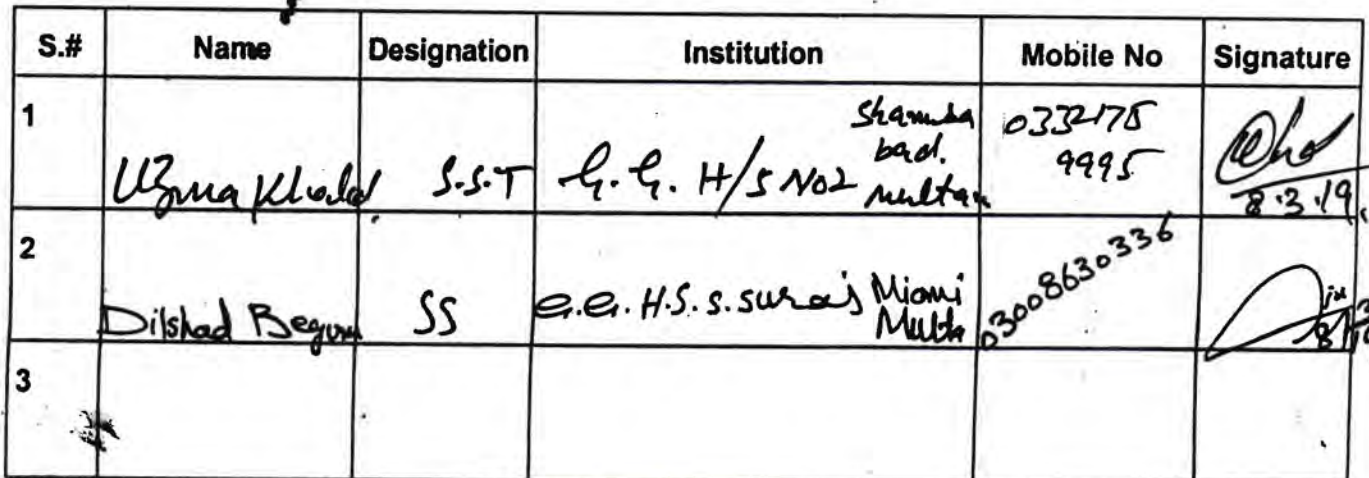 S.# Name Designation Institution Mobile No Signature
1 Uzma Khalid S.S.T G.G. H/S No2 Shamsabad. Multan 03321759995
8.3.19
2 Dilshad Begum SS G.G. H.S.S. Suraj Miani Multan 03008630336
3